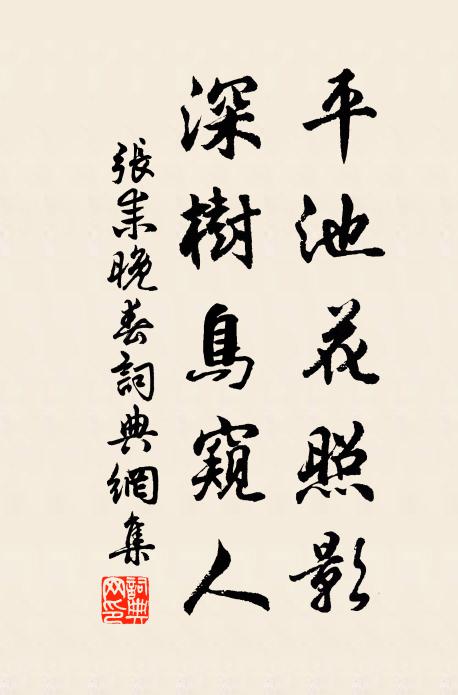 平池花照影
深樹鳥窺人
張耒晚春詞典網集
詞典
网印